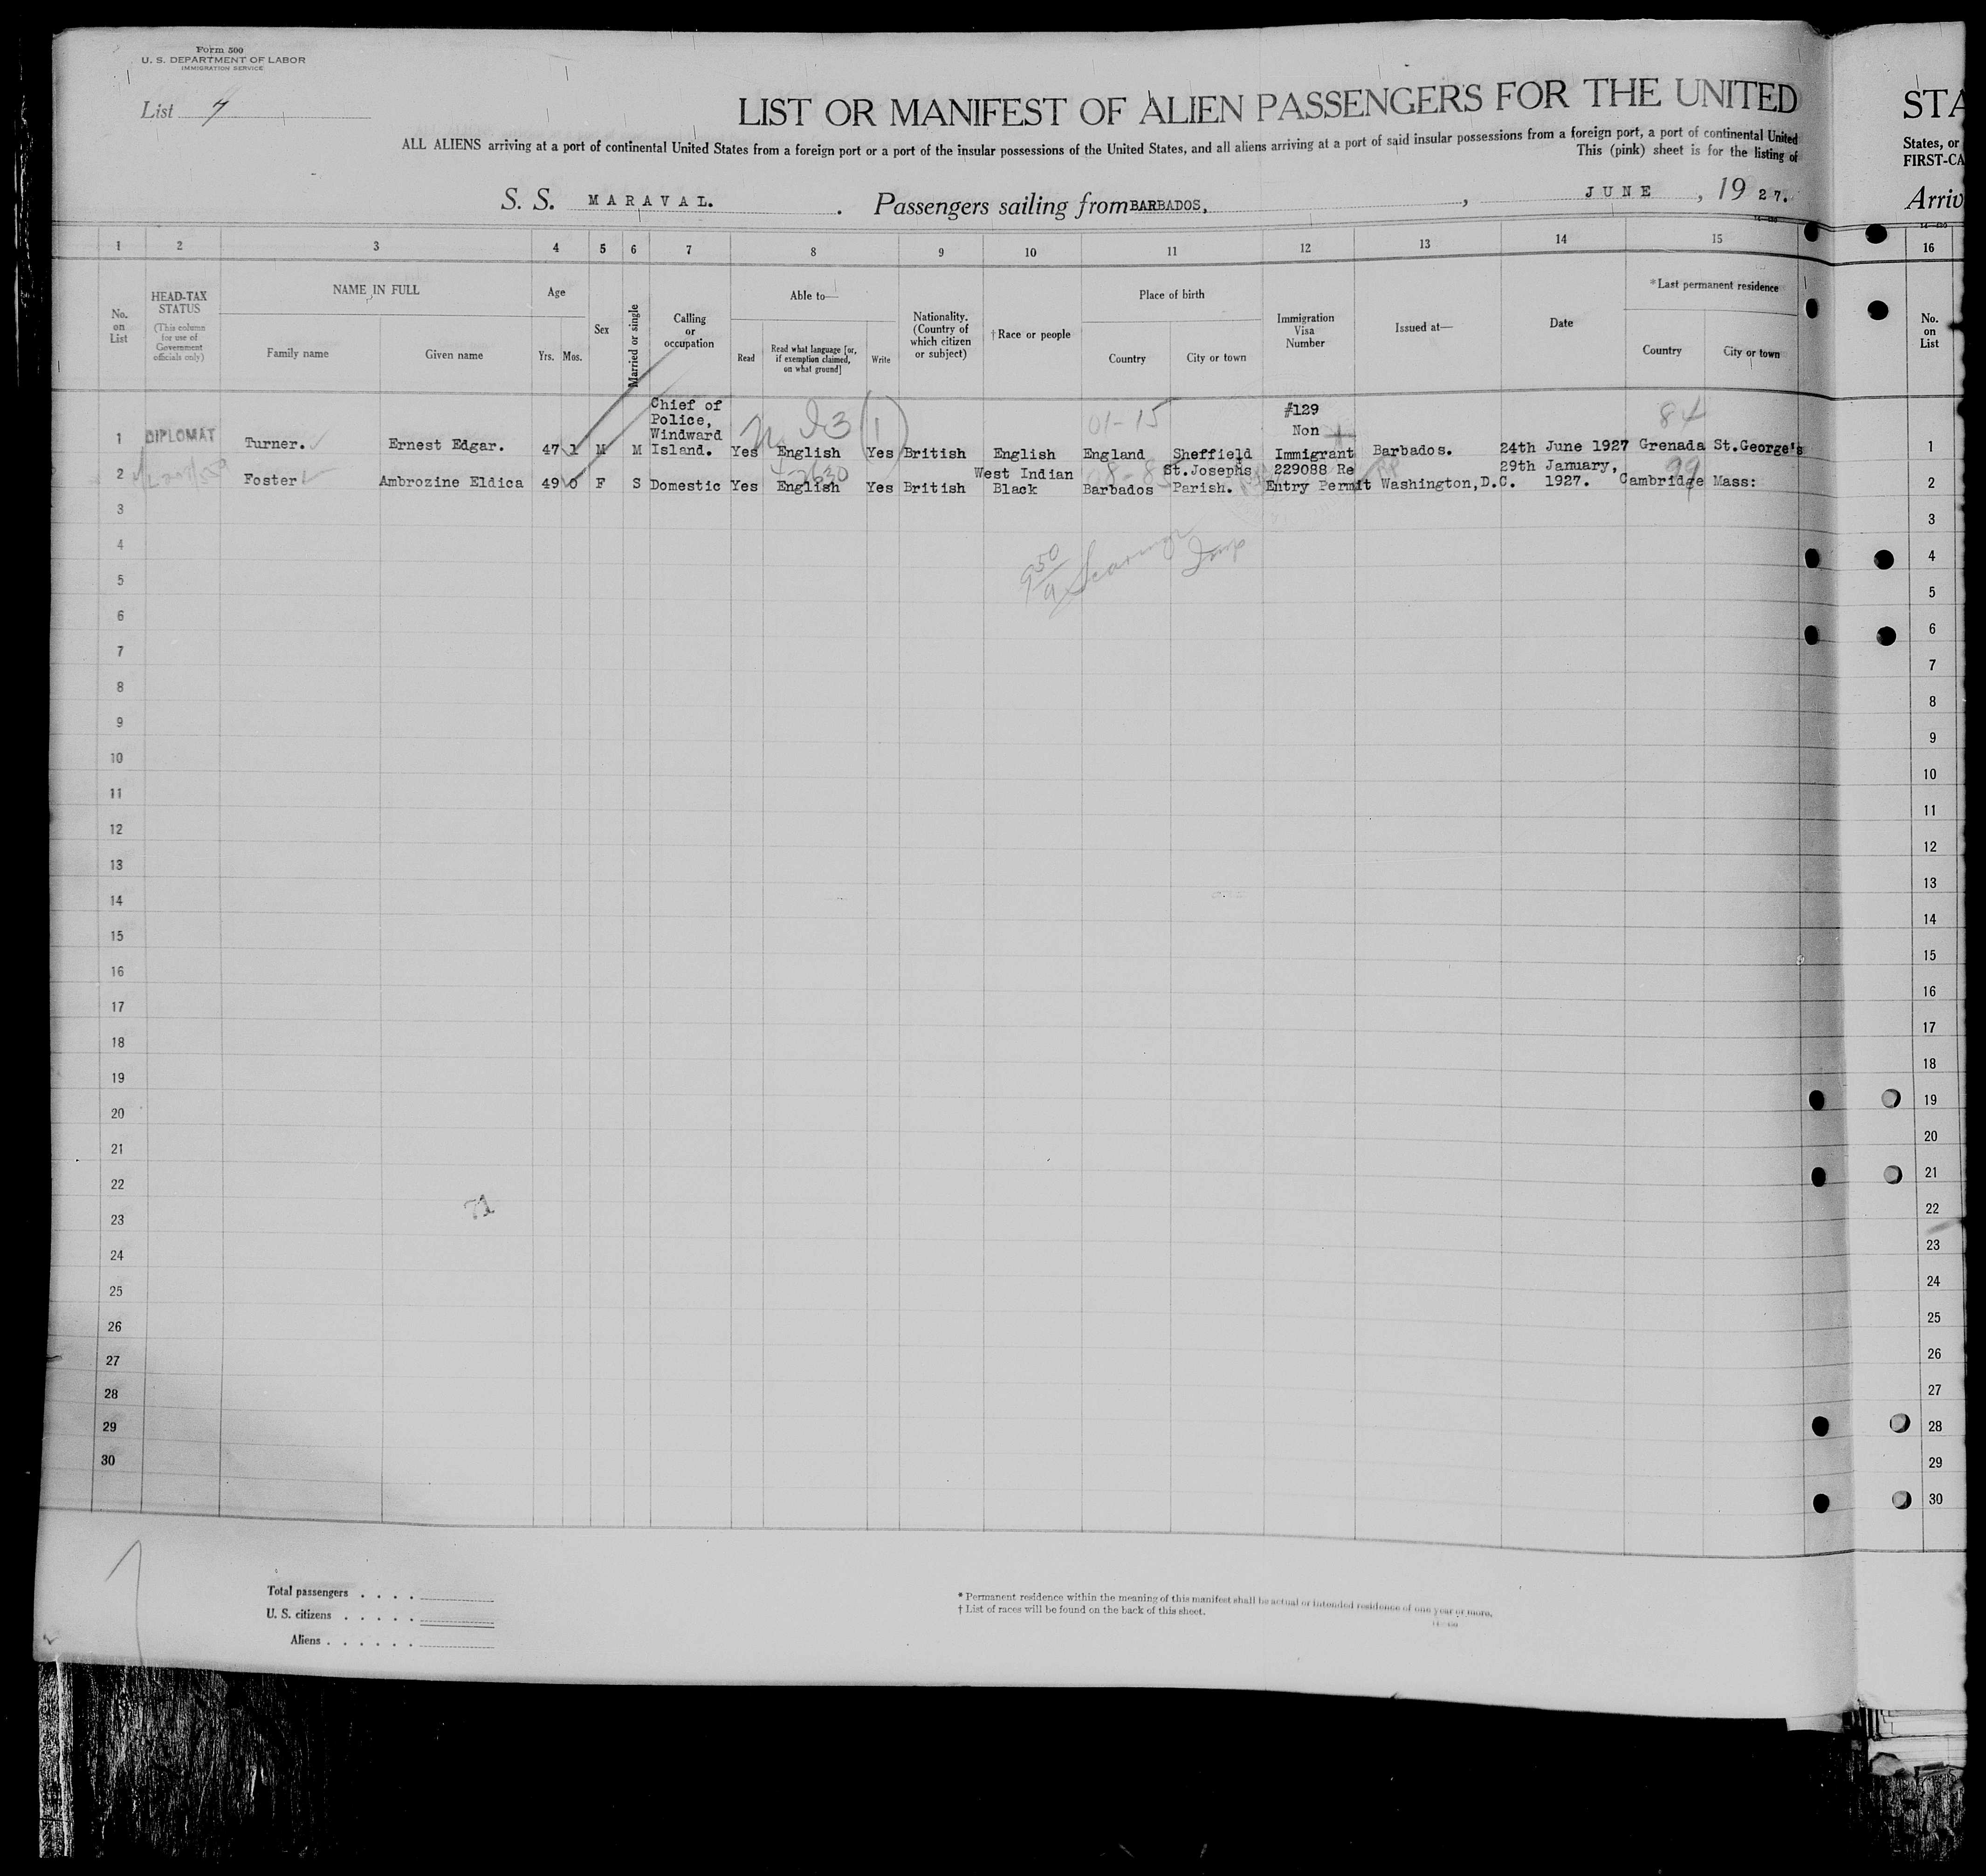 Form 500
U. S. DEPARTMENT OF LABOR
IMMIGRATION SERVICE
List 4
LIST OR MANIFEST OF ALIEN PASSENGERS FOR THE UNITED
STA
ALL ALIENS arriving at a port of continental United States from a foreign port or a port of the insular possessions of the United States, and all aliens arriving at a port of said insular possessions from a foreign port, a port of continental United
States, or
This (pink) sheet is for the listing of
FIRST-CA
S. S. MARAVAL. Passengers sailing from BARBADOS, , JUNE , 19 27.
Arriv
1 2 3 4 5 6 7 8 9 10 11 12 13 14 15 16
No. on List
HEAD-TAX STATUS
(This column for use of Government officials only)
NAME IN FULL
Family name
Given name
Age
Yrs. Mos.
Sex
Married or single
Calling or occupation
Able to—
Read
Read what language [or, if exemption claimed, on what ground]
Write
Nationality. (Country of which citizen or subject)
† Race or people
Place of birth
Country
City or town
Immigration Visa Number
Issued at—
Date
* Last permanent residence
Country
City or town
No. on List
1 DIPLOMAT Turner. Ernest Edgar. 47 1 M M Chief of Police, Windward Island. Yes English Yes British English England Sheffield #129 Non Immigrant Barbados. 24th June 1927 Grenada St.George's 1
01-15
84
2 Foster Ambrozine Eldica 49 0 F S Domestic Yes English Yes British West Indian Black Barbados St.Josephs Parish. 229088 Re Entry Permit Washington,D.C. 29th January, 1927. Cambridge Mass: 2
99
3 3
4 4
5 5
6 6
7 7
8 8
9 9
10 10
11 11
12 12
13 13
14 14
15 15
16 16
17 17
18 18
19 19
20 20
21 21
22 22
23 23
24 24
25 25
26 26
27 27
28 28
29 29
30 30
Total passengers . . . .
U. S. citizens . . . . .
Aliens . . . . . .
* Permanent residence within the meaning of this manifest shall be actual or intended residence of one year or more.
† List of races will be found on the back of this sheet.